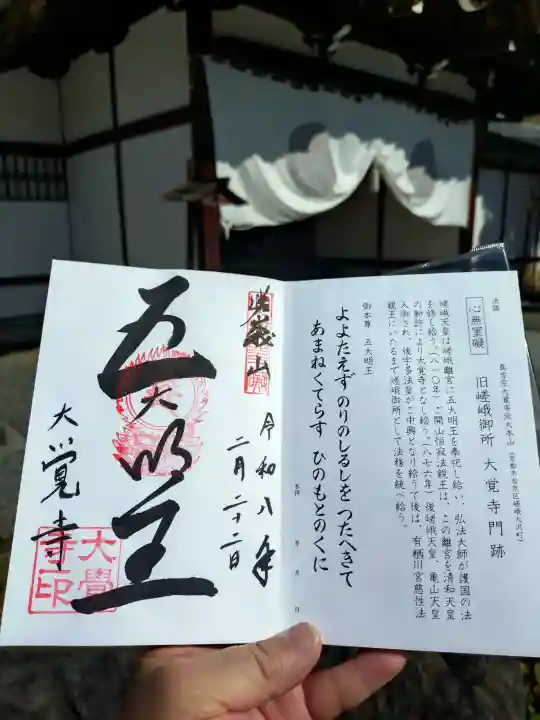 法話
心無罣礙
真言宗大覚寺派大本山 (京都市右京区嵯峨大沢町)
旧嵯峨御所 大覚寺門跡
嵯峨天皇は嵯峨離宮に五大明王を奉祀し給い、弘法大師が護国の法
を修し給う。(八一〇年)開山恒寂法親王は、この離宮を清和天皇
の勅許により大覚寺となし給う。(八七六年)後嵯峨天皇、亀山天皇
入御され、後宇多法皇がご中興となり給うて後は、有栖川宮慈性法
親王にいたるまで嵯峨御所として法務を統べ給う。
御本尊 五大明王
よよたえず のりのしるしを つたへきて
あまねくてらす ひのもとのくに
年 月 日
嵯峨山
令和八年
二月二十二日
五大明王
大覚寺
大覺
寺印